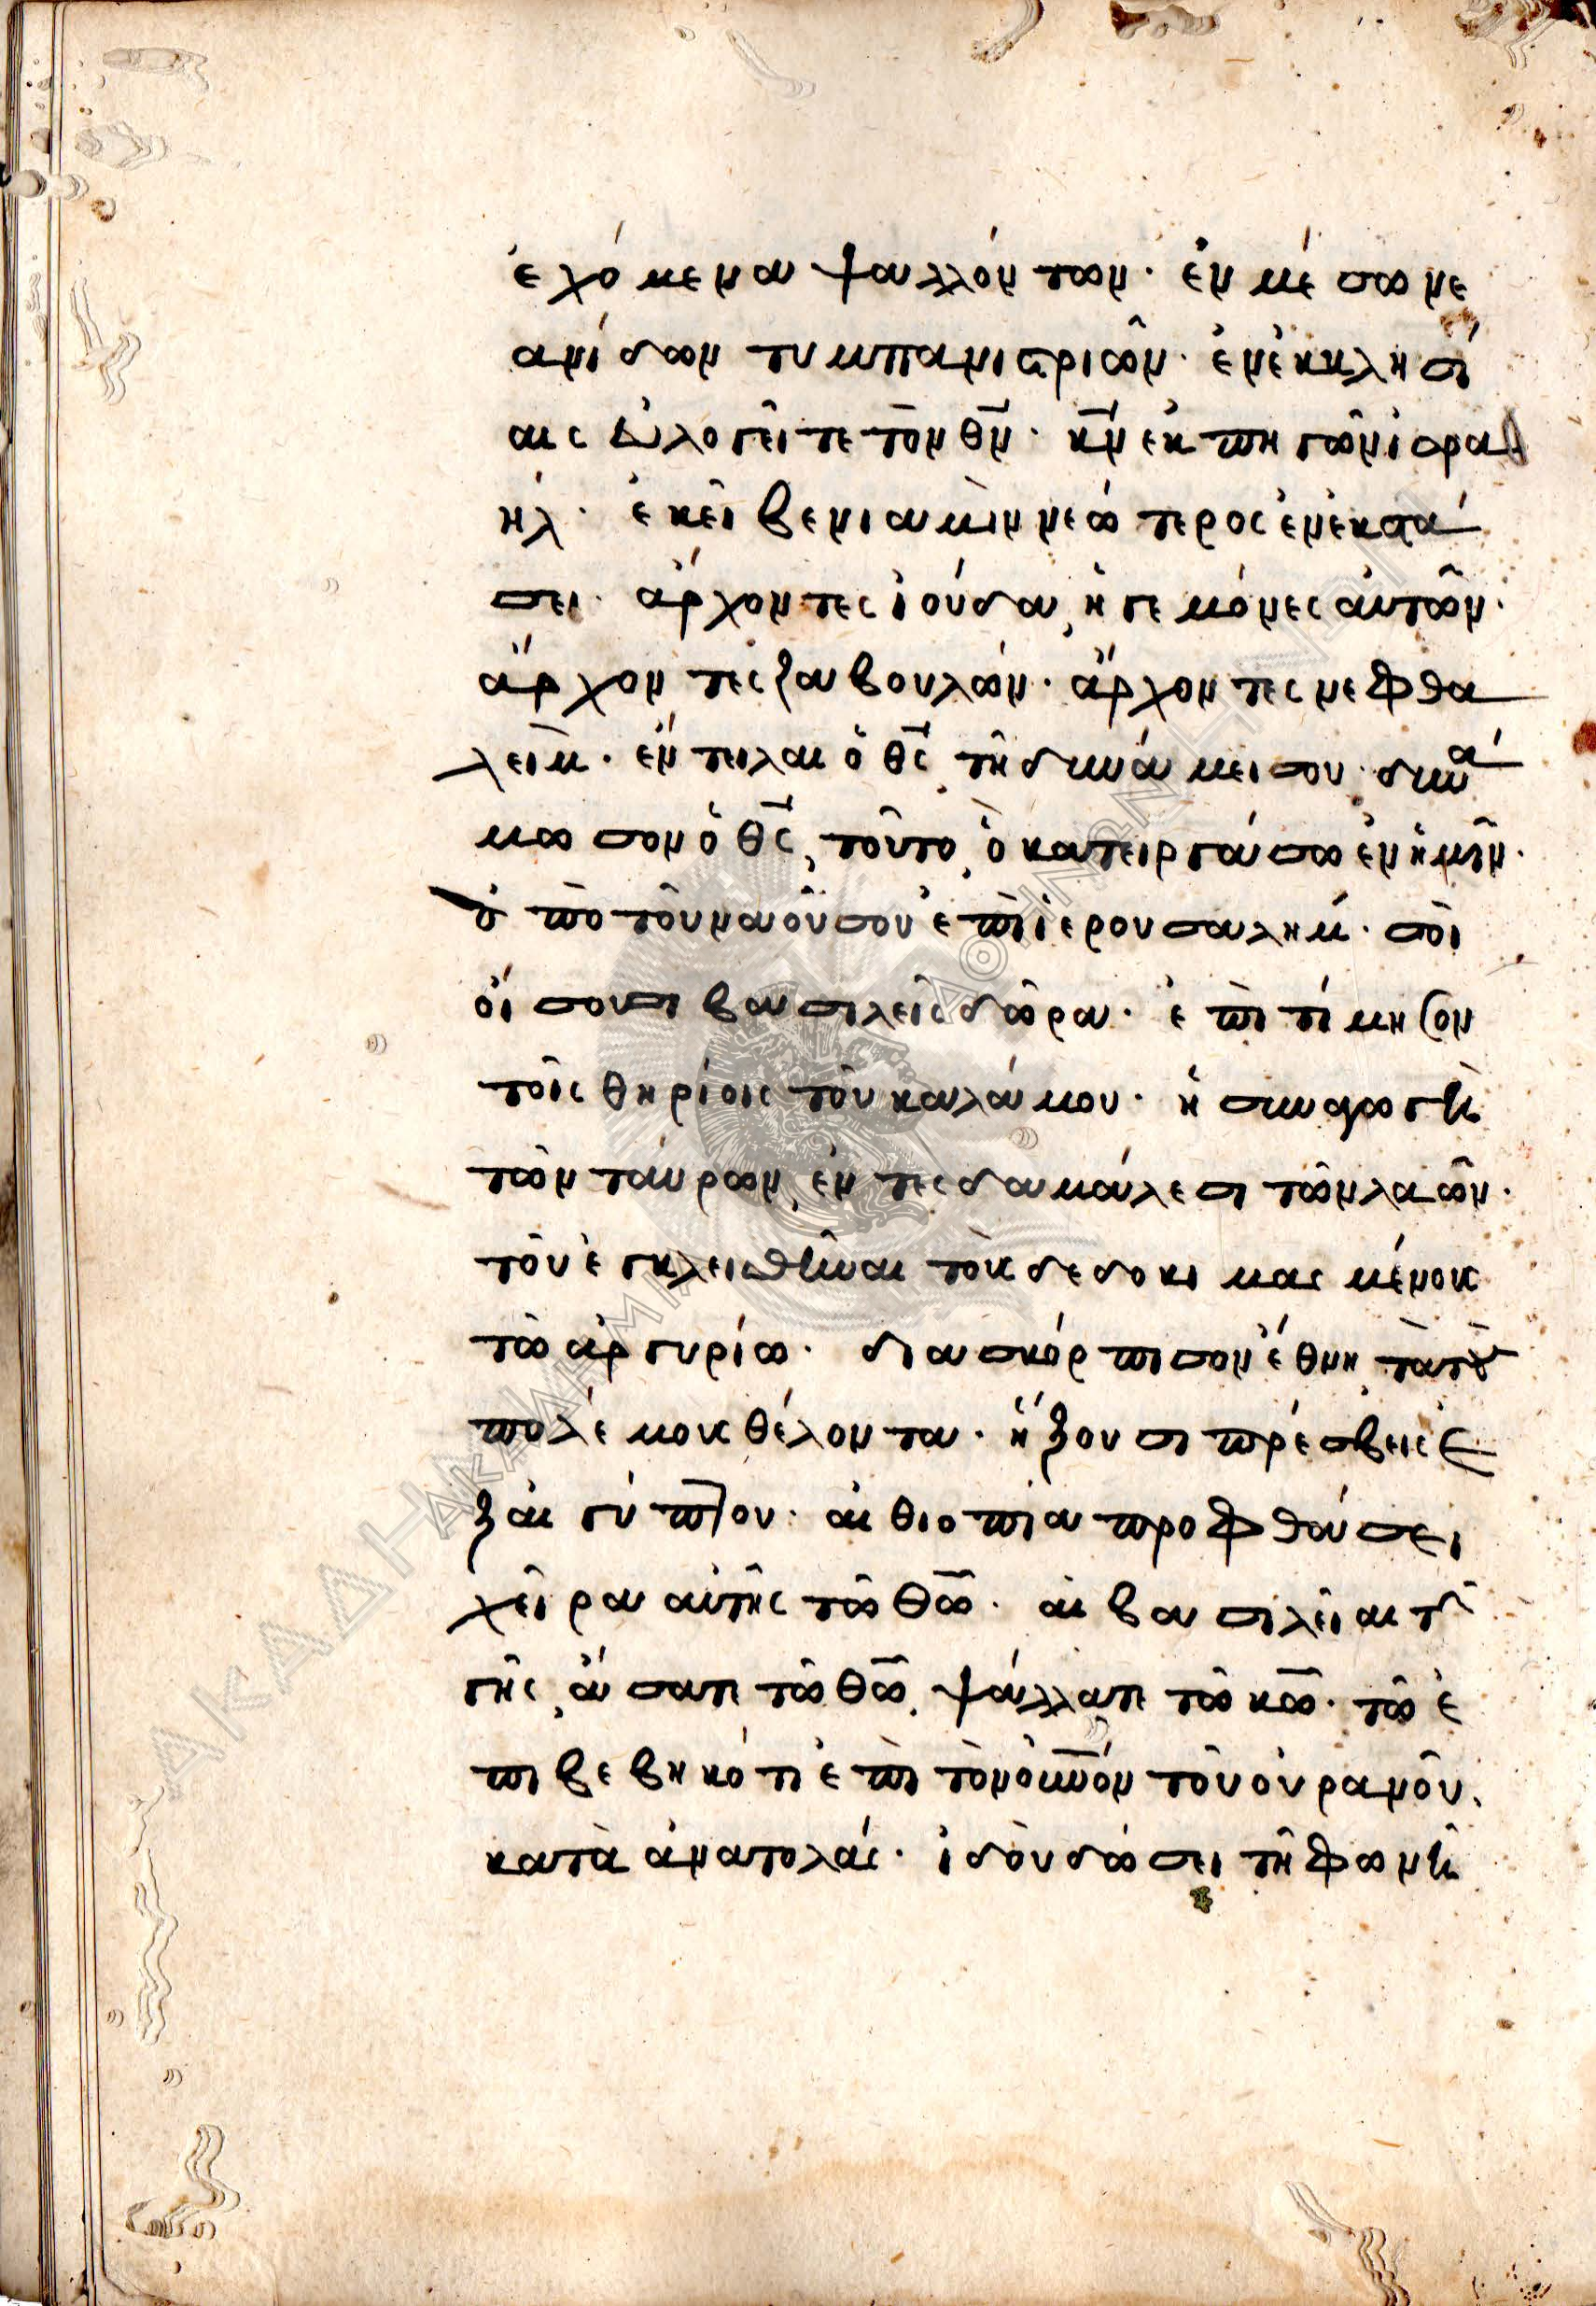 ἐχόμεναι ψαλλόντων· ἐν μέσω νε
ανίδων τυμπανιστριῶν· ἐν ἐκκλησί
αις εὐλογεῖτε τὸν θν̅· κν̅ ἐκ πηγῶν ἰσρα
ήλ· ἐκεῖ βενιαμὶν νεώτερος ἐν ἐκστά
σει· ἄρχοντες ἰούδα, ἡγεμόνες αὐτῶν·
ἄρχοντες ζαβουλών· ἄρχοντες νεφθα
λείμ· ἔντειλαι ὁ θς̅ τῆ δυνάμει σου· δυνά
μωσον ὁ θς̅, τοῦτο, ὃ κατειργάσω ἐν ἡμῖν·
ἀπὸ τοῦ ναοῦ σου ἐπὶ ἱερουσαλήμ· σοὶ
οἴσουσι βασιλεῖς δῶρα· ἐπιτίμησον
τοῖς θηρίοις τοῦ καλάμου· ἡ συναγωγὴ
τῶν ταύρων, ἐν τες δαμάλεσι τῶν λαῶν·
τοῦ ἐγκλεισθῆναι τοὺς δεδοκιμασμένους
τῶ ἀργυρίω· διασκόρπισον ἔθνη τὰ τοὺς
πολέμους θέλοντα· ἥξουσι πρέσβεις ἐ
ξ αἰγύπτου· αἰθιοπία προφθάσει
χεῖρα αὐτῆς τῶ θω̅· αἱ βασιλεῖαι τῆς
γῆς, ἄσατε τῶ θω̅, ψάλλατε τῶ κω̅· τῶ ἐ
πιβεβηκότι ἐπὶ τὸν οὐνὸν τοῦ οὐρανοῦ,
κατὰ ἀνατολάς· ἰδοὺ δώσει τῆ φωνῆ